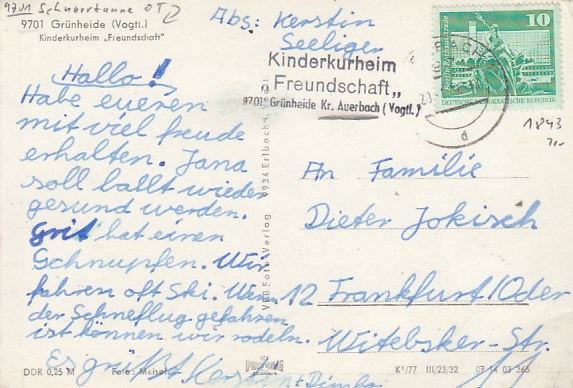 9701 Schneetanne OT
9701 Grünheide (Vogtl.)
Kinderkurheim „Freundschaft"
Hallo!
Habe eueren
mit viel freude
erhalten. Jana
soll ballt wieder
gesund werden.
Grit hat einen
Schnupfen. Wir
fahren oft Ski. Wen
der Schneflug gefahren
ist können wir rodeln.
Es grüßt Kerstin +
DDR 0,25 M
Foto: Meinel
VEB
Verlag
9934 Erlbach
Abs: Kerstin
Seeliger
Kinderkurheim
„Freundschaft"
9701 Grünheide Kr. Auerbach (Vogtl.)
10
DEUTSCHE DEMOKRATISCHE REPUBLIK
1843
An Familie
Dieter Jokisch
12 Frankfurt/Oder
Witebsker-Str.
K1/77 III/23/32 07 14 03 365